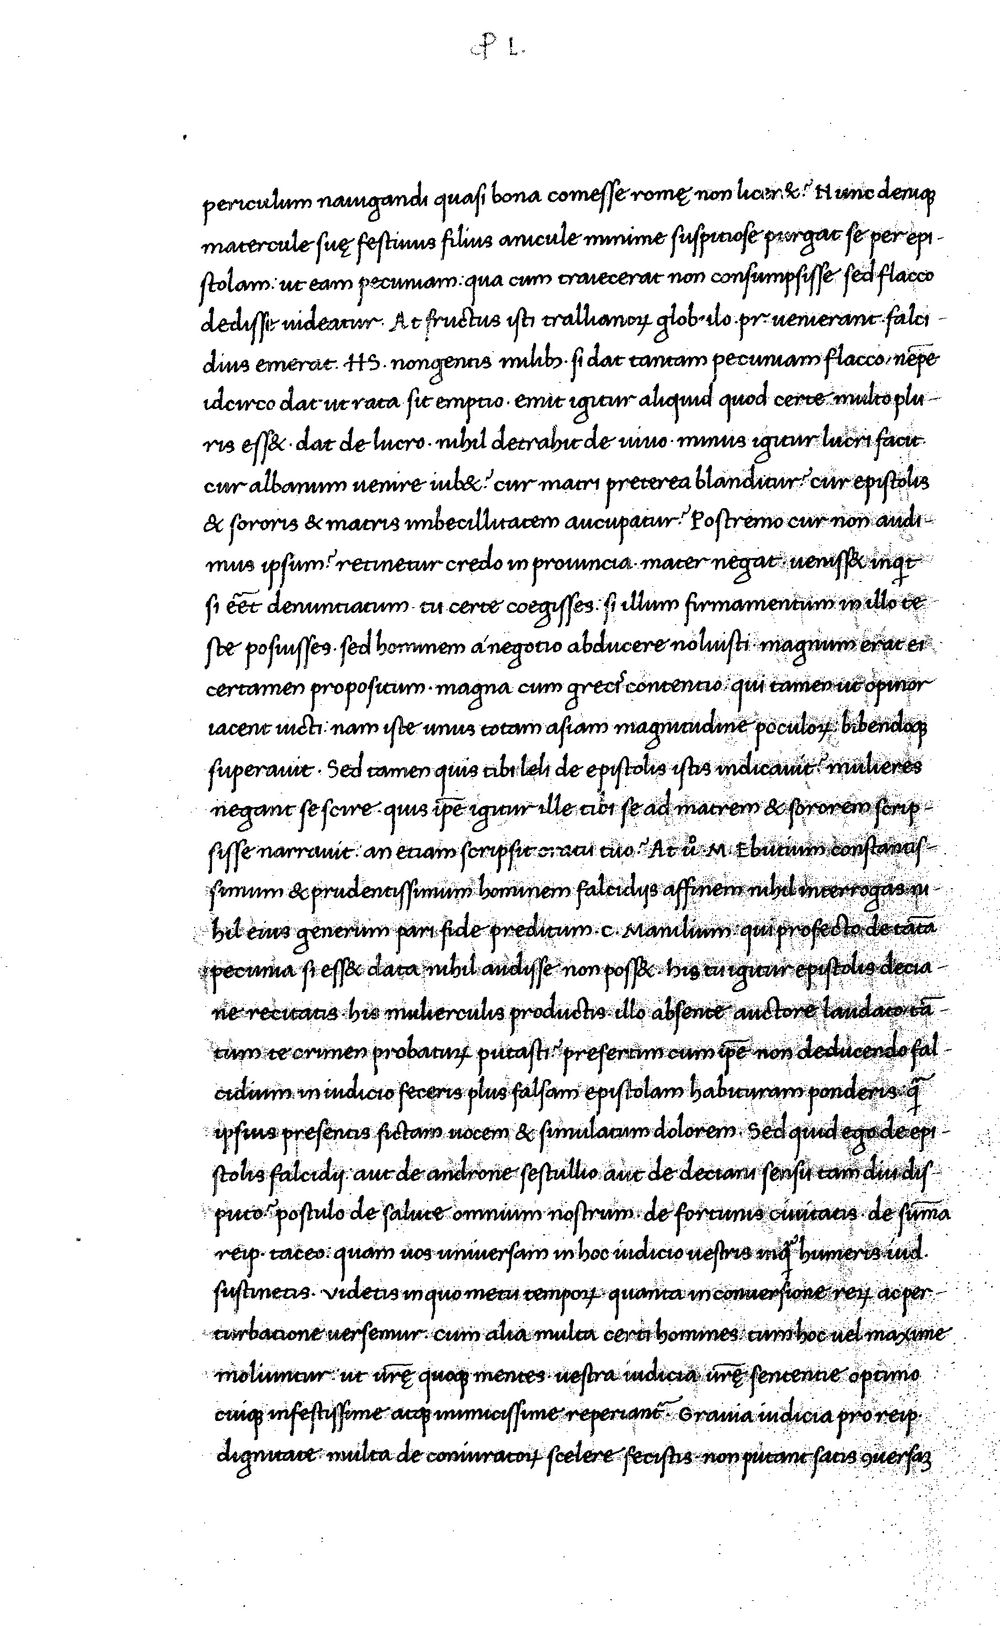 P L.
periculum nauigandi quasi bona comesse romę non licer&? Nunc deniq;
matercule suę festiuus filius anicule minime suspitiose purgat se per epi-
stolam: ut eam pecuniam: qua cum traiecerat non consumpsisse sed flacco
dedisse uideatur. At fructus isti tralliano℞ glob·ilo pr uenierant falci-
dius emerat. HS. nongentis milib; si dat tantam pecuniam flacco: nēpe
idcirco dat ut rata sit emptio· emit igitur aliquid quod certe multo plu-
ris ess&· dat de lucro· nihil detrahit de uiuo· minus igitur lucri facit.
cur albanum uenire iub&? cur matri preterea blanditur? cur epistolis
& sororis & matris imbecillitatem aucupatur? Postremo cur non audi-
mus ipsum? retinetur credo in prouincia· mater negat·ueniss& inqt
si eēt denuntiatum· tu certe coegisses: si illum firmamentum in illo te-
ste posuisses· sed hominem a negotio abducere noluisti· magnum erat ei
certamen propositum· magna cum grecis contentio· qui tamen ut opinor
iacent uicti· nam iste unus totam asiam magnitudine poculo℞ bibendoq;
superauit· Sed tamen quis tibi leli de epistolis istis indicauit? mulieres
negant se scire· quis ip̄e igitur ille tibi se ad matrem & sororem scrip-
sisse narrauit· an etiam scripsit oratu tuo? At u° M. Ebutium constantis-
simum & prudentissimum hominem falcidijs affinem nihil interrogas ni-
hil eius generum pari fide preditum· C. Manilium· qui profecto de tāta
pecunia si ess& data nihil audisse non poss&· his tu igitur epistolis decia-
ne recitatis· his mulierculis productis· illo absente auctore laudato tā-
tum te crimen probatu℞ putasti? presertim cum ip̄e non deducendo fal-
cidium in iudicio feceris plus falsam epistolam habituram ponderis: q̄
ipsius presentis fictam uocem & simulatum dolorem. Sed quid ego de epi-
stolis falcidij· aut de androne sestullio aut de deciani sensu tam diu dis-
puto? postulo de salute omnium nostrum· de fortunis ciuitatis· de sum̄a
reip· taceo: quam uos uniuersam in hoc iudicio uestris inq̄ humeris iud.
sustinetis· Videtis in quo metu tempo℞· quanta in conuersione re℞ ac per-
turbatione uersemur· cum alia multa certi homines tum hoc uel maxime
moliuntur: ut ūrę quoq; mentes· uestra iudicia ūrę sententie optimo
cuiq; infestissime atq; inimicissime reperiant̄· Grauia iudicia pro reip.
dignitate· multa de coniurato℞ scelere fecistis· non putant satis ꝯuersaʒ